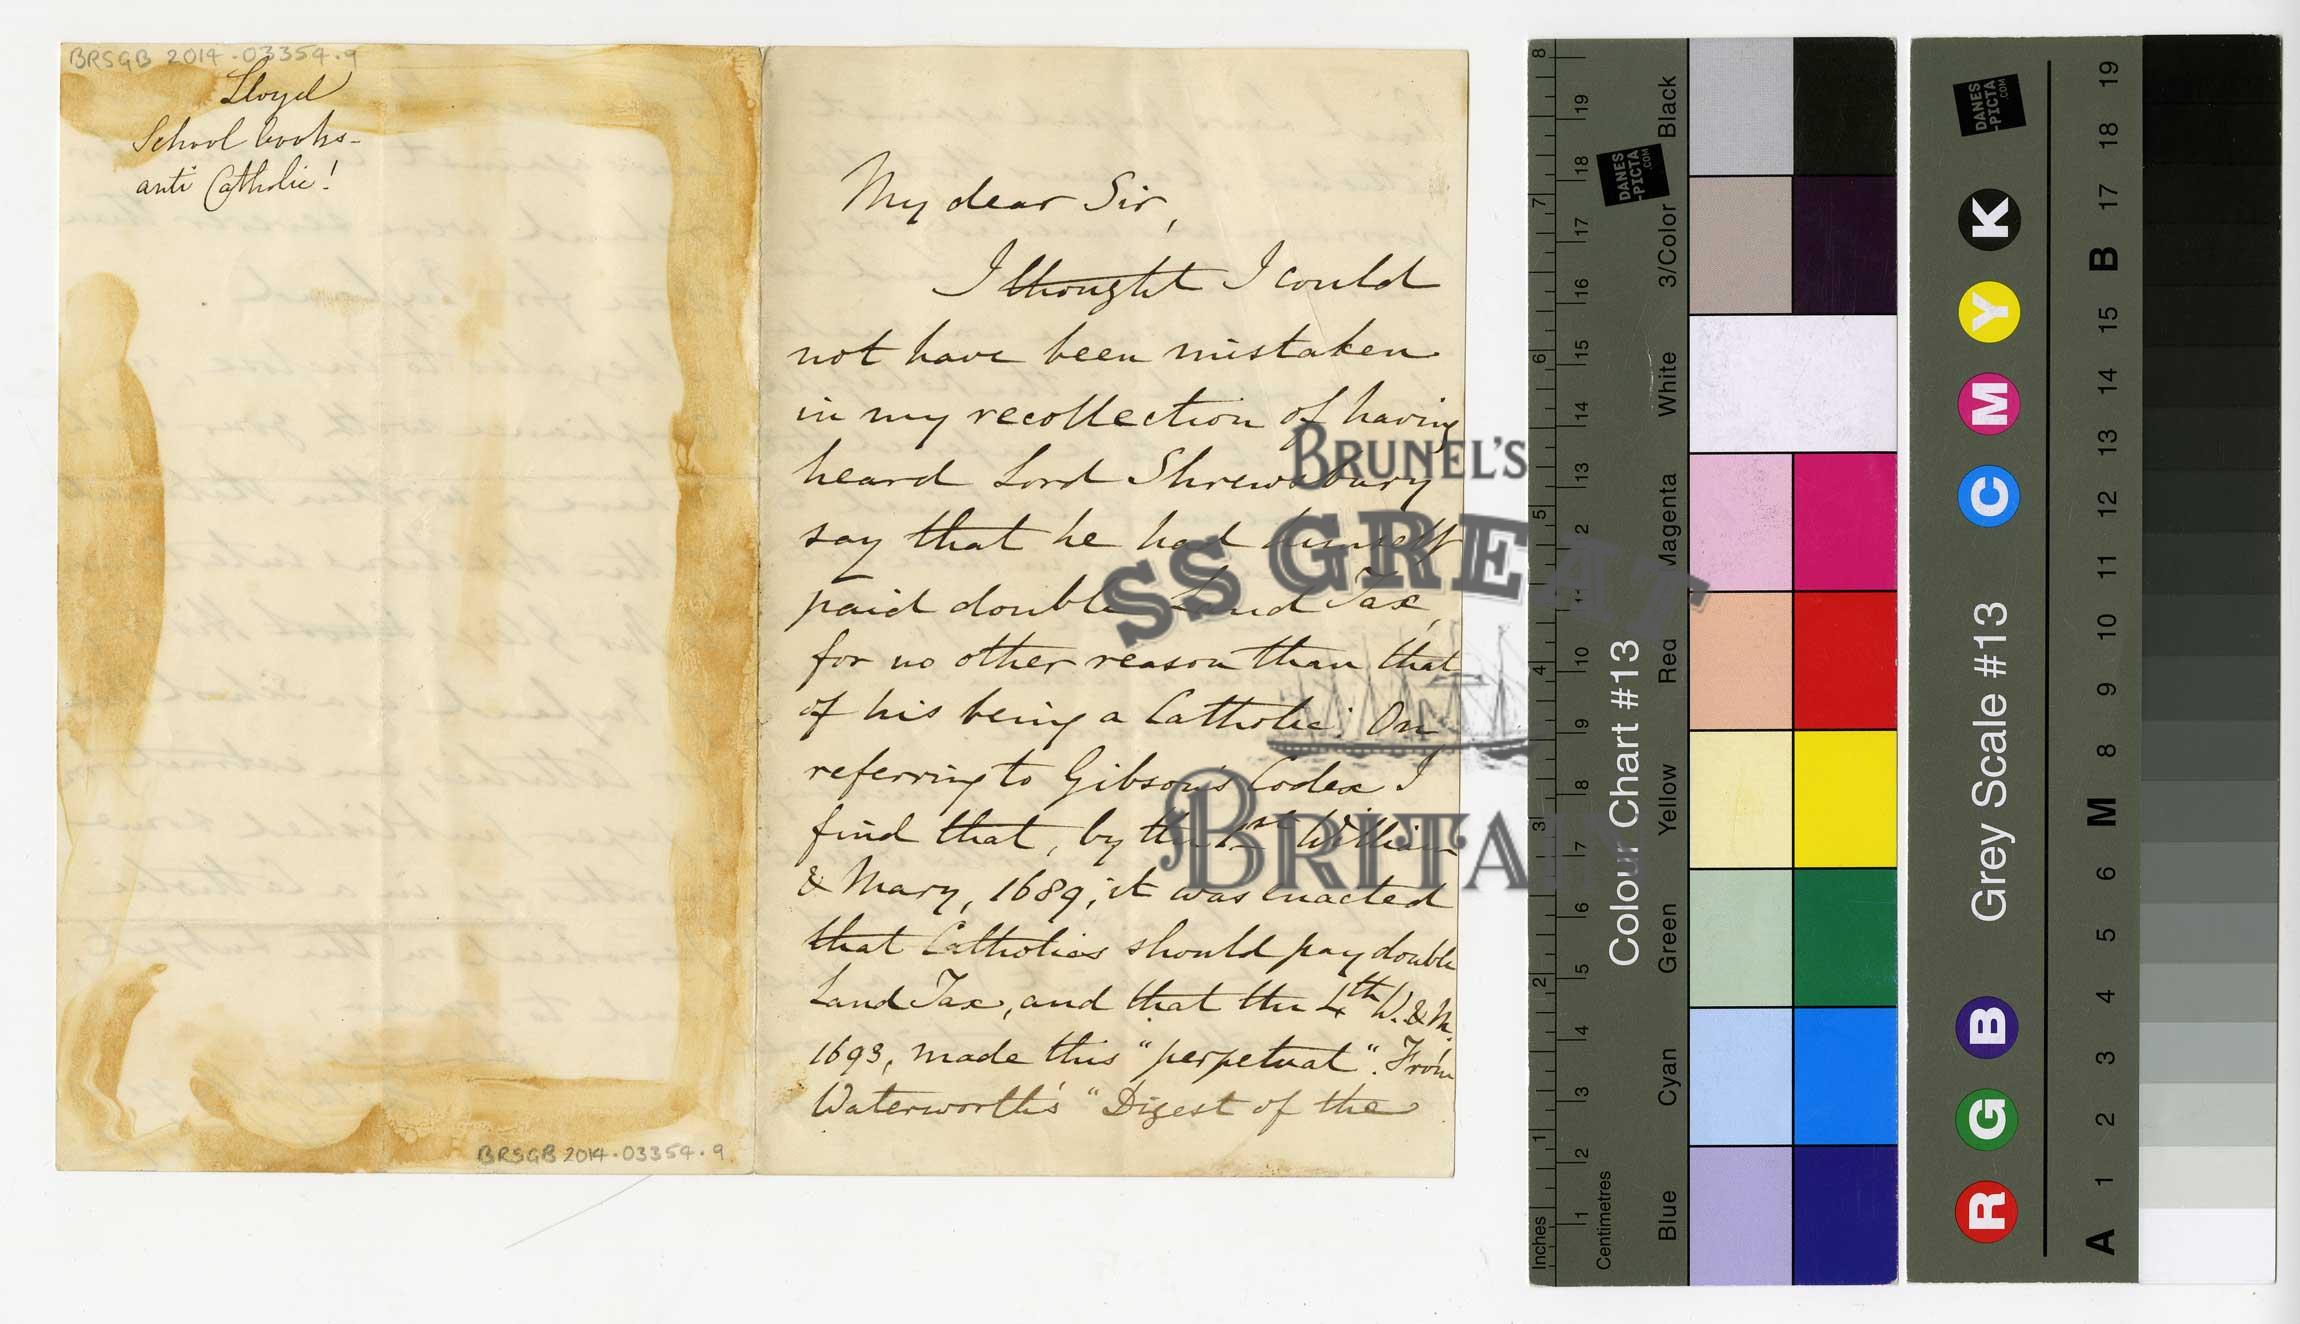 BRSGB 2014.03354.9
Lloyd
School books-
anti Catholic!
BRSGB 2014.03354.9
My dear Sir,
I thought I could
not have been mistaken
in my recollection of having
heard Lord Shrewsbury
say that he had himself
paid double Land Tax,
for no other reason than that
of his being a Catholic. On
referring to Gibson's Codex I
find that, by the 1st William
& Mary, 1689, it was enacted
that Catholics should pay double
Land Tax, and that the 4th W. & M.
1693, made this "perpetual". From
Waterworth's "Digest of the
BRUNEL'S
SS GREAT
BRITAIN
Inches
1
2
3
4
5
6
7
8
Centimetres
1
2
3
4
5
6
7
8
9
10
11
2
13
14
15
16
17
18
19
Colour Chart #13
Blue
Cyan
Green
Yellow
Red
Magenta
White
3/Color
Black
DANES
-PICTA
.COM
R
G
B
C
M
Y
K
Grey Scale #13
DANES
-PICTA
.COM
A
1
2
3
4
5
6
M
8
9
10
11
12
13
14
15
B
17
18
19